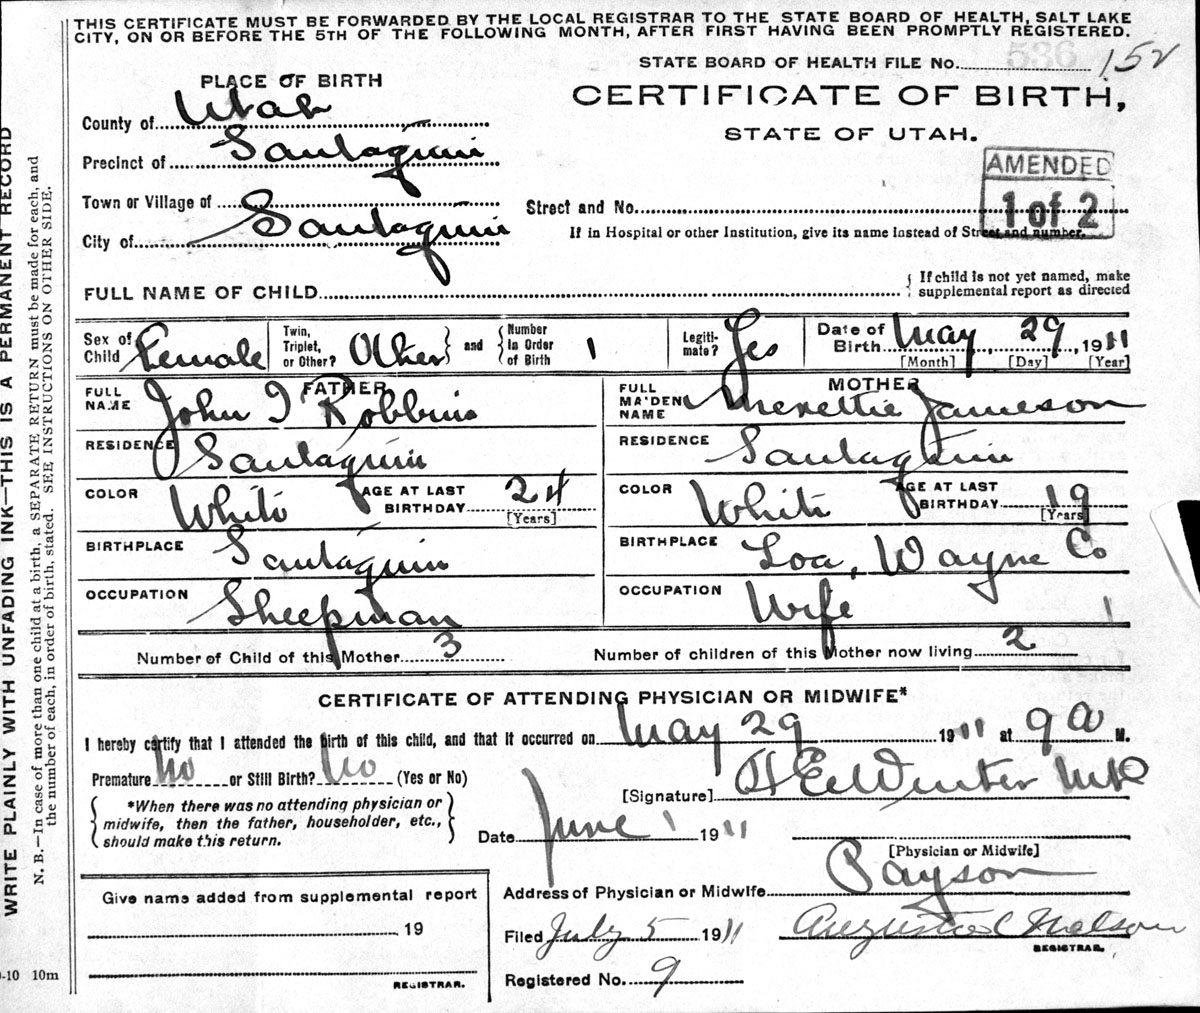 THIS CERTIFICATE MUST BE FORWARDED BY THE LOCAL REGISTRAR TO THE STATE BOARD OF HEALTH, SALT LAKE
CITY, ON OR BEFORE THE 5TH OF THE FOLLOWING MONTH, AFTER FIRST HAVING BEEN PROMPTLY REGISTERED.
536
STATE BOARD OF HEALTH FILE No. 152
PLACE OF BIRTH
CERTIFICATE OF BIRTH,
STATE OF UTAH.
County of Utah
Precinct of Santaquin
AMENDED
1 of 2
Town or Village of
Street and No.
City of Santaquin
If in Hospital or other Institution, give its name instead of Street and number.
FULL NAME OF CHILD
{ If child is not yet named, make
supplemental report as directed
Sex of Child Female
Twin, Triplet, or Other? Other } and { Number In Order of Birth 1
Legitimate? Yes
Date of Birth May 29, 1911
[Month] [Day] [Year]
FATHER
FULL NAME John I Robbins
MOTHER
FULL MAIDEN NAME Merettie Jameson
RESIDENCE Santaquin
RESIDENCE Santaquin
COLOR White AGE AT LAST BIRTHDAY 24 [Years]
COLOR White AGE AT LAST BIRTHDAY 19 [Years]
BIRTHPLACE Santaquin
BIRTHPLACE Loa, Wayne Co
OCCUPATION Sheepman
OCCUPATION Wife
Number of Child of this Mother 3
Number of children of this Mother now living 2
CERTIFICATE OF ATTENDING PHYSICIAN OR MIDWIFE*
I hereby certify that I attended the birth of this child, and that it occurred on May 29 1911 at 9 a M.
Premature No or Still Birth? No (Yes or No)
[Signature] MD
{ *When there was no attending physician or
midwife, then the father, householder, etc.,
should make this return. }
Date June 1 1911
[Physician or Midwife]
Address of Physician or Midwife Payson
Give name added from supplemental report
19
REGISTRAR.
Filed July 5 1911
Nelson
REGISTRAR.
Registered No. 9
-10 10m
WRITE PLAINLY WITH UNFADING INK—THIS IS A PERMANENT RECORD
N. B.—In case of more than one child at a birth, a SEPARATE RETURN must be made for each, and
the number of each, in order of birth, stated. SEE INSTRUCTIONS ON OTHER SIDE.